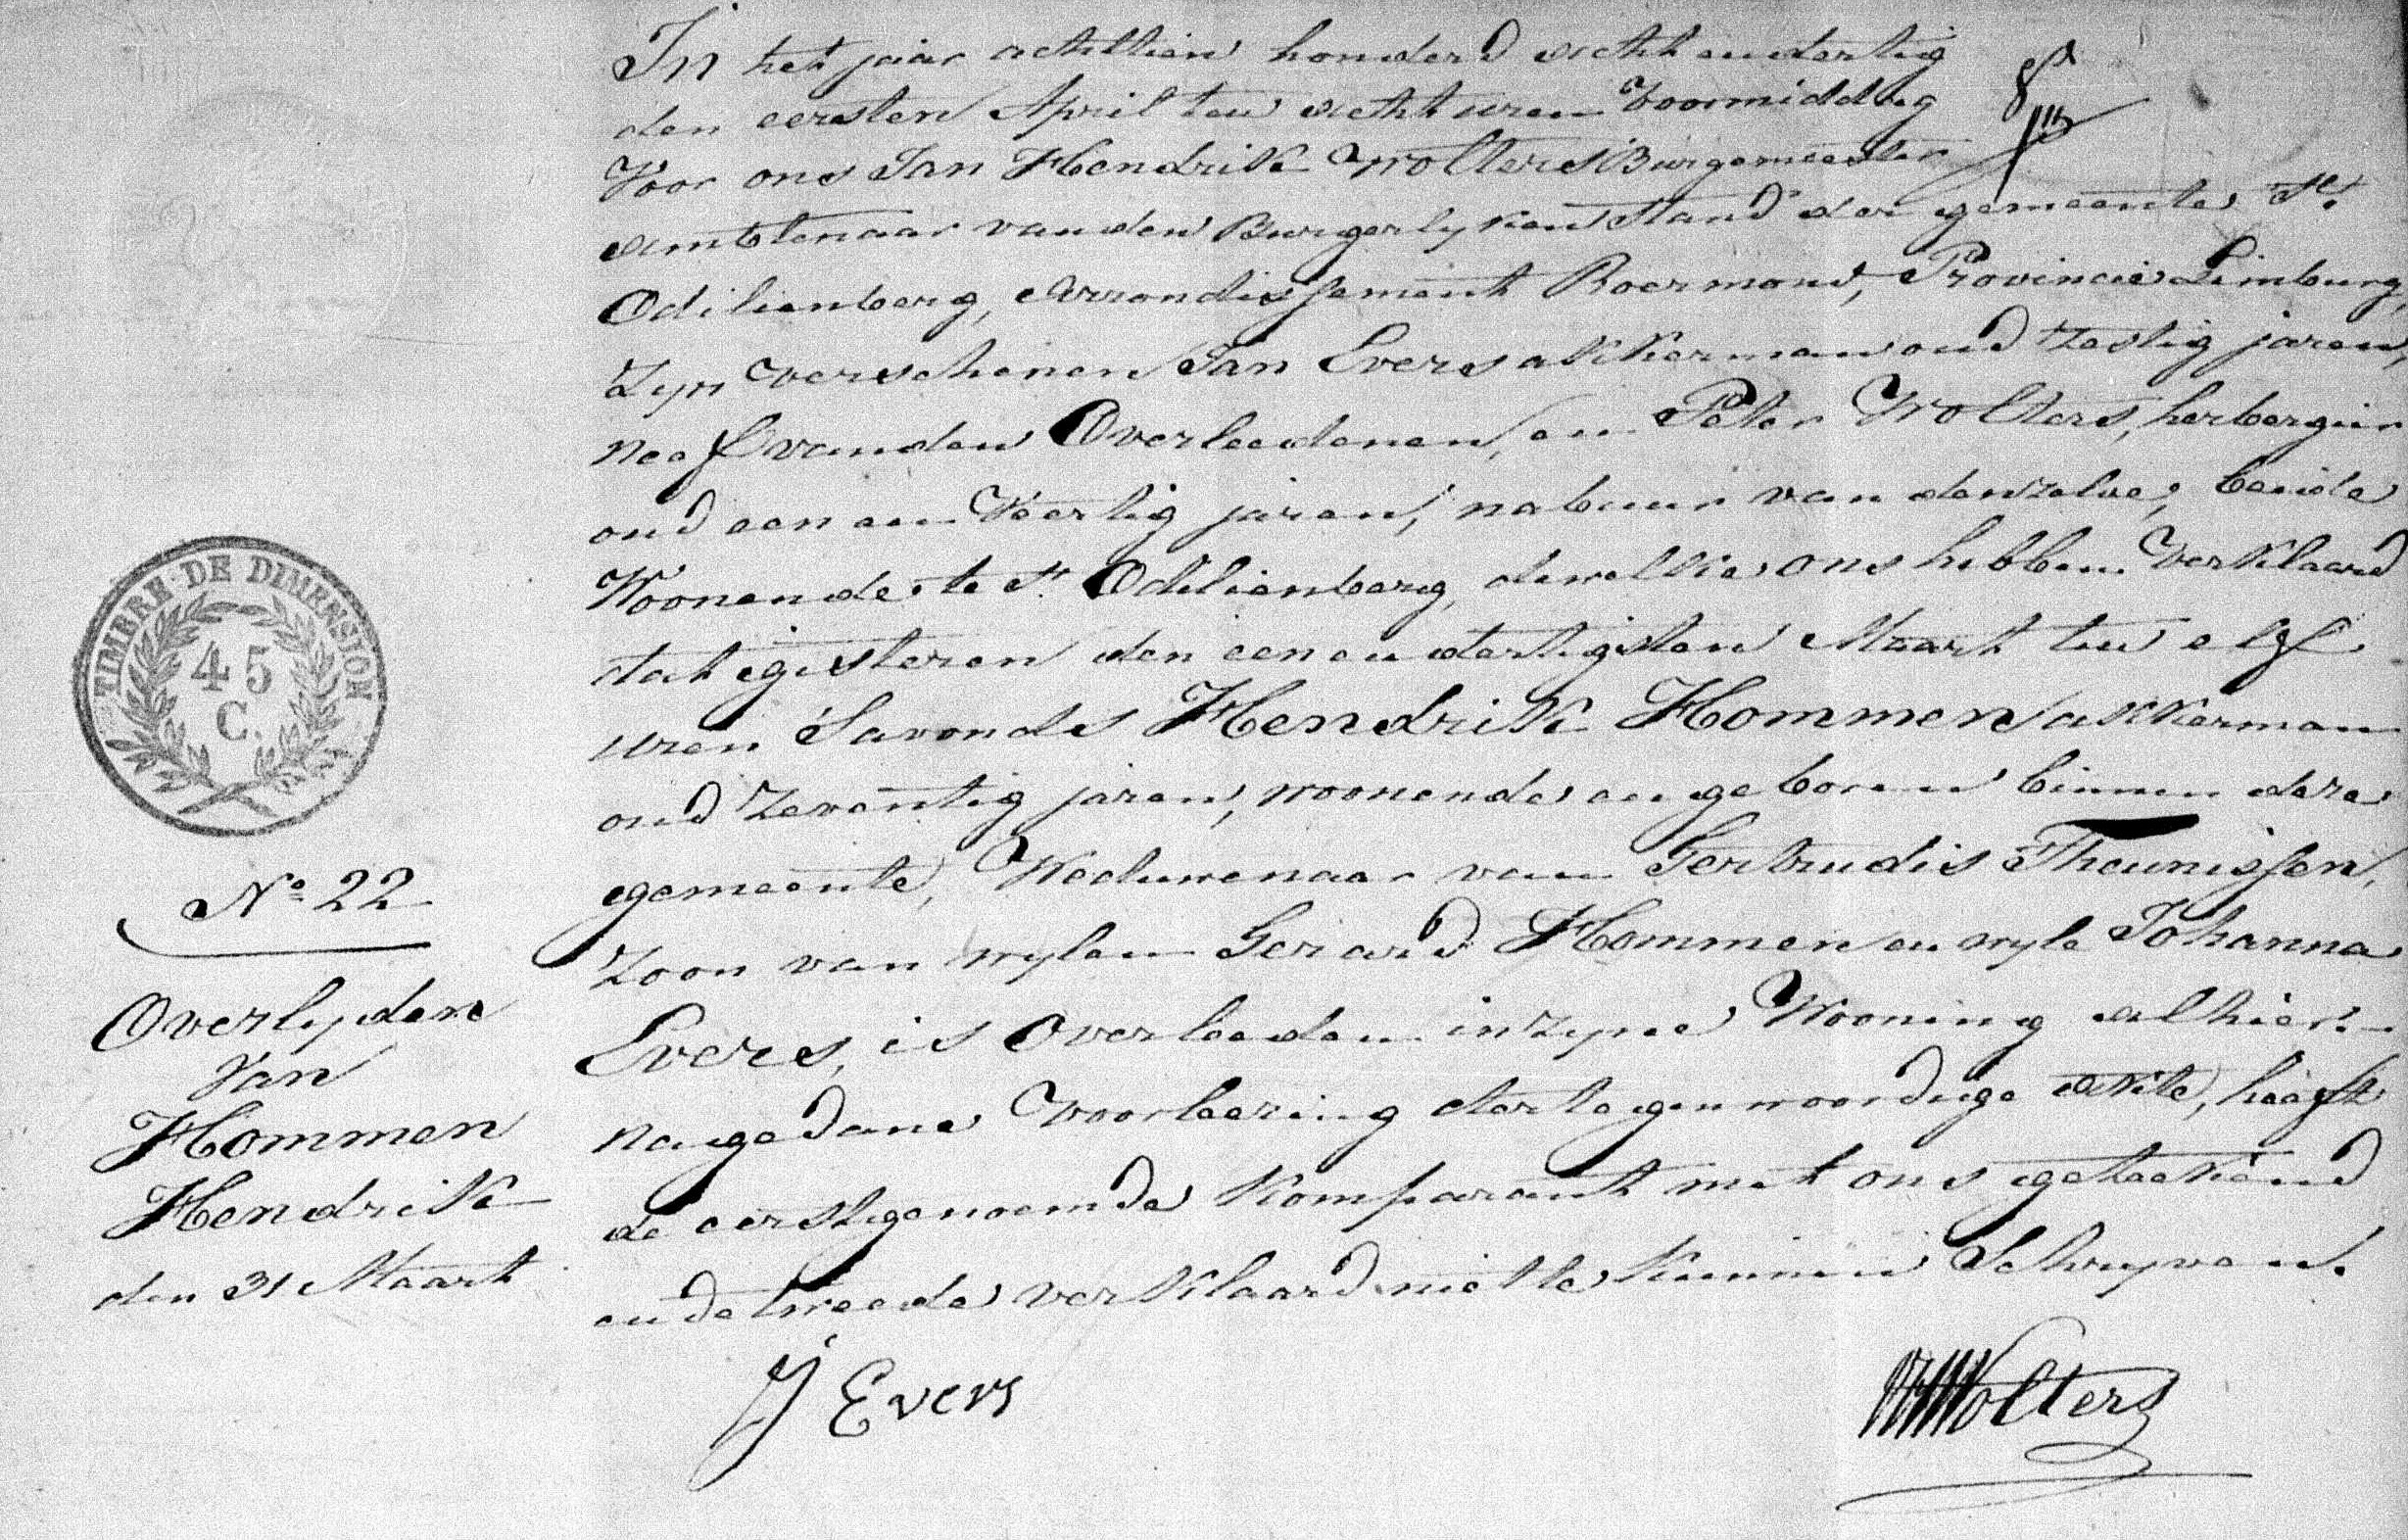 TIMBRE DE DIMENSION
45
C.
No 22
Overlyden
Van
Hommen
Hendrik
den 31 Maart
In het jaar achttien honderd acht en dertig
den eersten April ten acht uren Voormiddag
Voor ons Jan Hendrik Wolters Burgemeester
Ambtenaar van den Burgerlyken Stand der gemeente St.
Odilienberg, Arrondissement Roermond, Provincie Limburg,
Zyn verschenen Jan Evers akkerman oud zestig jaren,
neef van den Overleedenen, en Peter Wolters, herbergier
oud een en Veertig jaren, nabuur van denzelve, beide
Woonende te St. Odilienberg, dewelke ons hebben Verklaard
dat gisteren den een en dertigsten Maart ten elf
uren Savonds Hendrik Hommen akkerman
oud Zeventig jaren, woonende en geboren binnen deze
gemeente, Weduwenaar van Gertrudis Theunissen,
Zoon van wylen Gerard Hommen en wyle Johanna
Evers, is Overleeden in zyne Wooning alhier.
na gedane Voorleezing der tegenwoordige Akte, heeft
de eerstgenoemde Komparant met ons geteekend
en de tweede verklaard niet te kunnen Schryven.
J Evers
Wolters